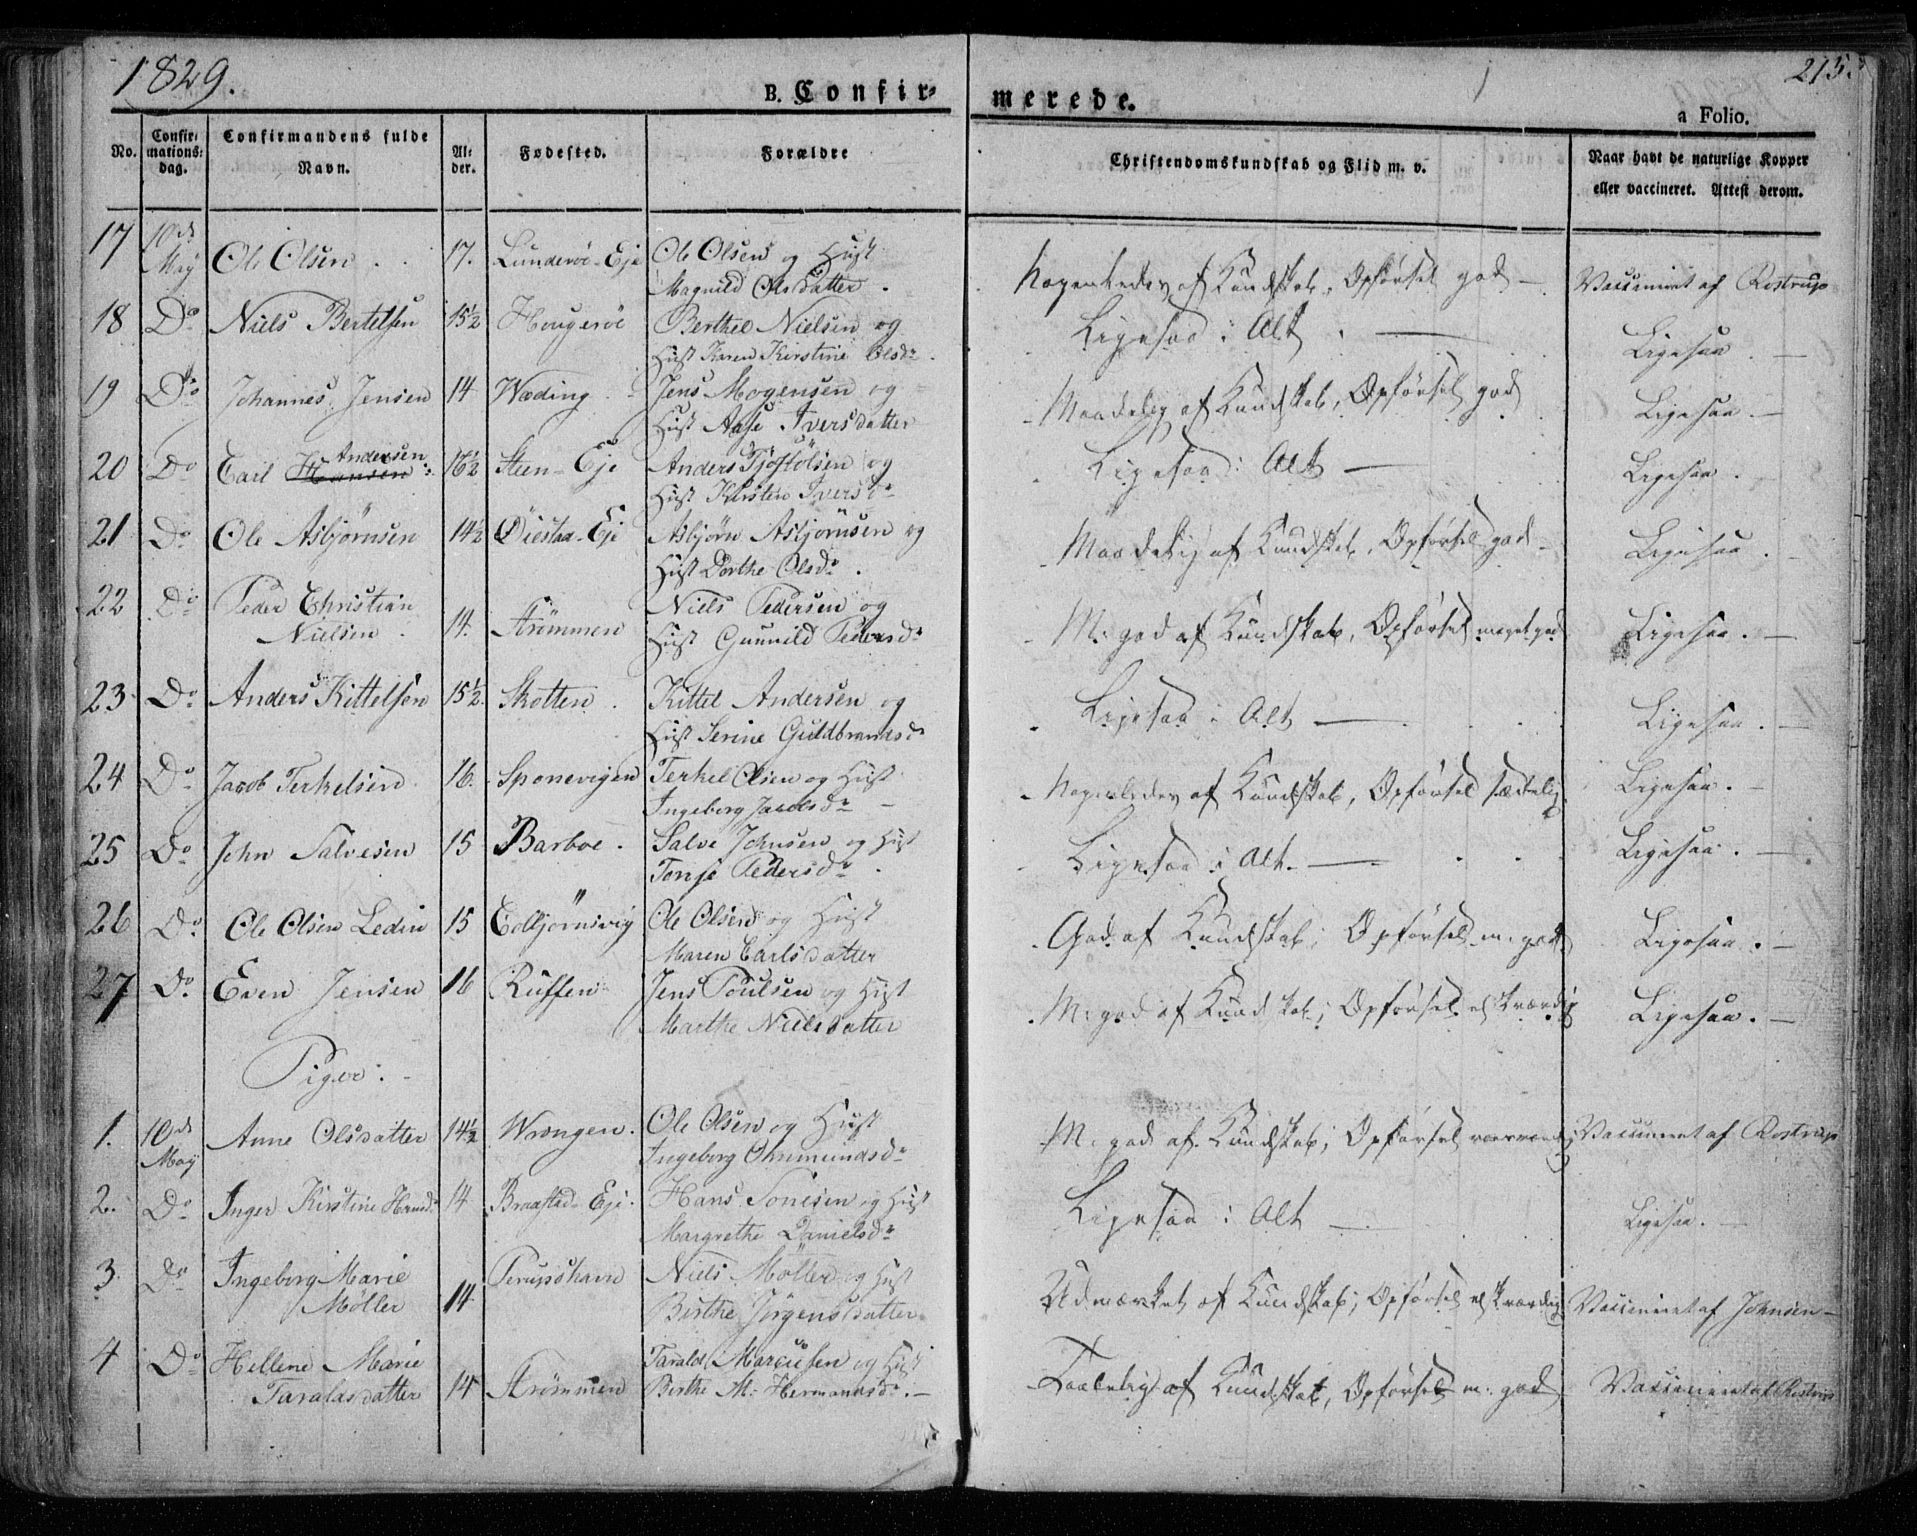 1829.
B. Confir-
merede.
215.
a Folio.
No. Confirmations-dag. Confirmandens fulde Navn. Alder. Fødested. Forældre Christendomskundskab og Flid m. v. Naar havt de naturlige Kopper eller vaccineret. Attest derom.
17 10de May Ole Olsen 17. Eje Ole Olsen og Hust
Magnild Olsdatter. Nogenledes af Kundskab, Opførsel god Vaccineret af Rostrup
18 Do Niels Bertelsen 15½ Hougeröe Berthel Nielsen og
Hust Karen Kirstine Olsdr. Ligesaa i Alt Ligesaa
19 Do Johannes Jensen 14 Wæding Jens Mogensen og
Hust Aase Iversdatter Maadelig af Kundskab, Opførsel god Ligesaa.
20 Do Carl Hansen Andersen 16½ Steen-Eje Anders Tjöstolsen og
Hust Kirsten Iversdr Ligesaa i Alt Ligesaa
21 Do Ole Asbjörnsen 14½ Öiestad-Eje Asbjörn Asbjörnsen og
Hust Dorthe Olsdr. Maadelig af Kundskab, Opførsel god Ligesaa
22 Do Peder Christian
Nielsen 14. Strömmen Niels Pedersen og
Hust Gunnild Pedersdr M: god af Kundskab, Opførsel meget god Ligesaa.
23 Do Anders Kittelsen 15½ Skotten Kittel Andersen og
Hust Serine Guldbrandsdr Ligesaa i Alt Ligesaa.
24 Do Jacob Terkelsen 16. Sponevigen Terkel Olsen og Hust
Ingeborg Jacobsdr Nogenledes af Kundskab, Opførsel sædelig Ligesaa.
25 Do John Salvesen 15 Barboe. Salve Johnsen og Hust
Tonje Pedersdr. Ligesaa i Alt. Ligesaa.
26 Do Ole Olsen Ledin 15 Colbjörnsvig Ole Olsen og Hust
Maren Carlsdatter God af Kundskab; Opførsel m. god Ligesaa.
27 Do. Even Jensen 16 Ruffen Jens Poulsen og Hust
Marthe Nielsdatter M: god af Kundskab; Opførsel elskværdig Ligesaa.
Piger.
1. 10de May Anne Olsdatter 14½ Wrængen. Ole Olsen og Hust
Ingeborg Ommundsdr M: god af Kundskab; Opførsel Vaccineret af Rostrup
2. Do Inger Kirstine Hansdr 14 Braastad-Eje. Hans Tonesen og Hust
Margrethe Danielsdr Ligesaa i Alt Ligesaa.
3. Do Ingeborg Marie
Möller 14 Niels Möller og Hust
Birthe Jörgensdatter Udmærket af Kundskab; Opførsel elskværdig Vaccineret af Johnsen
4 Do Hellene Marie
Taraldsdatter 14 Strömmen Tarald Marcussen og Hust
Birthe M: Hermansdr. Taalelig af Kundskab, Opførsel m: god Vaccineret af Rostrup